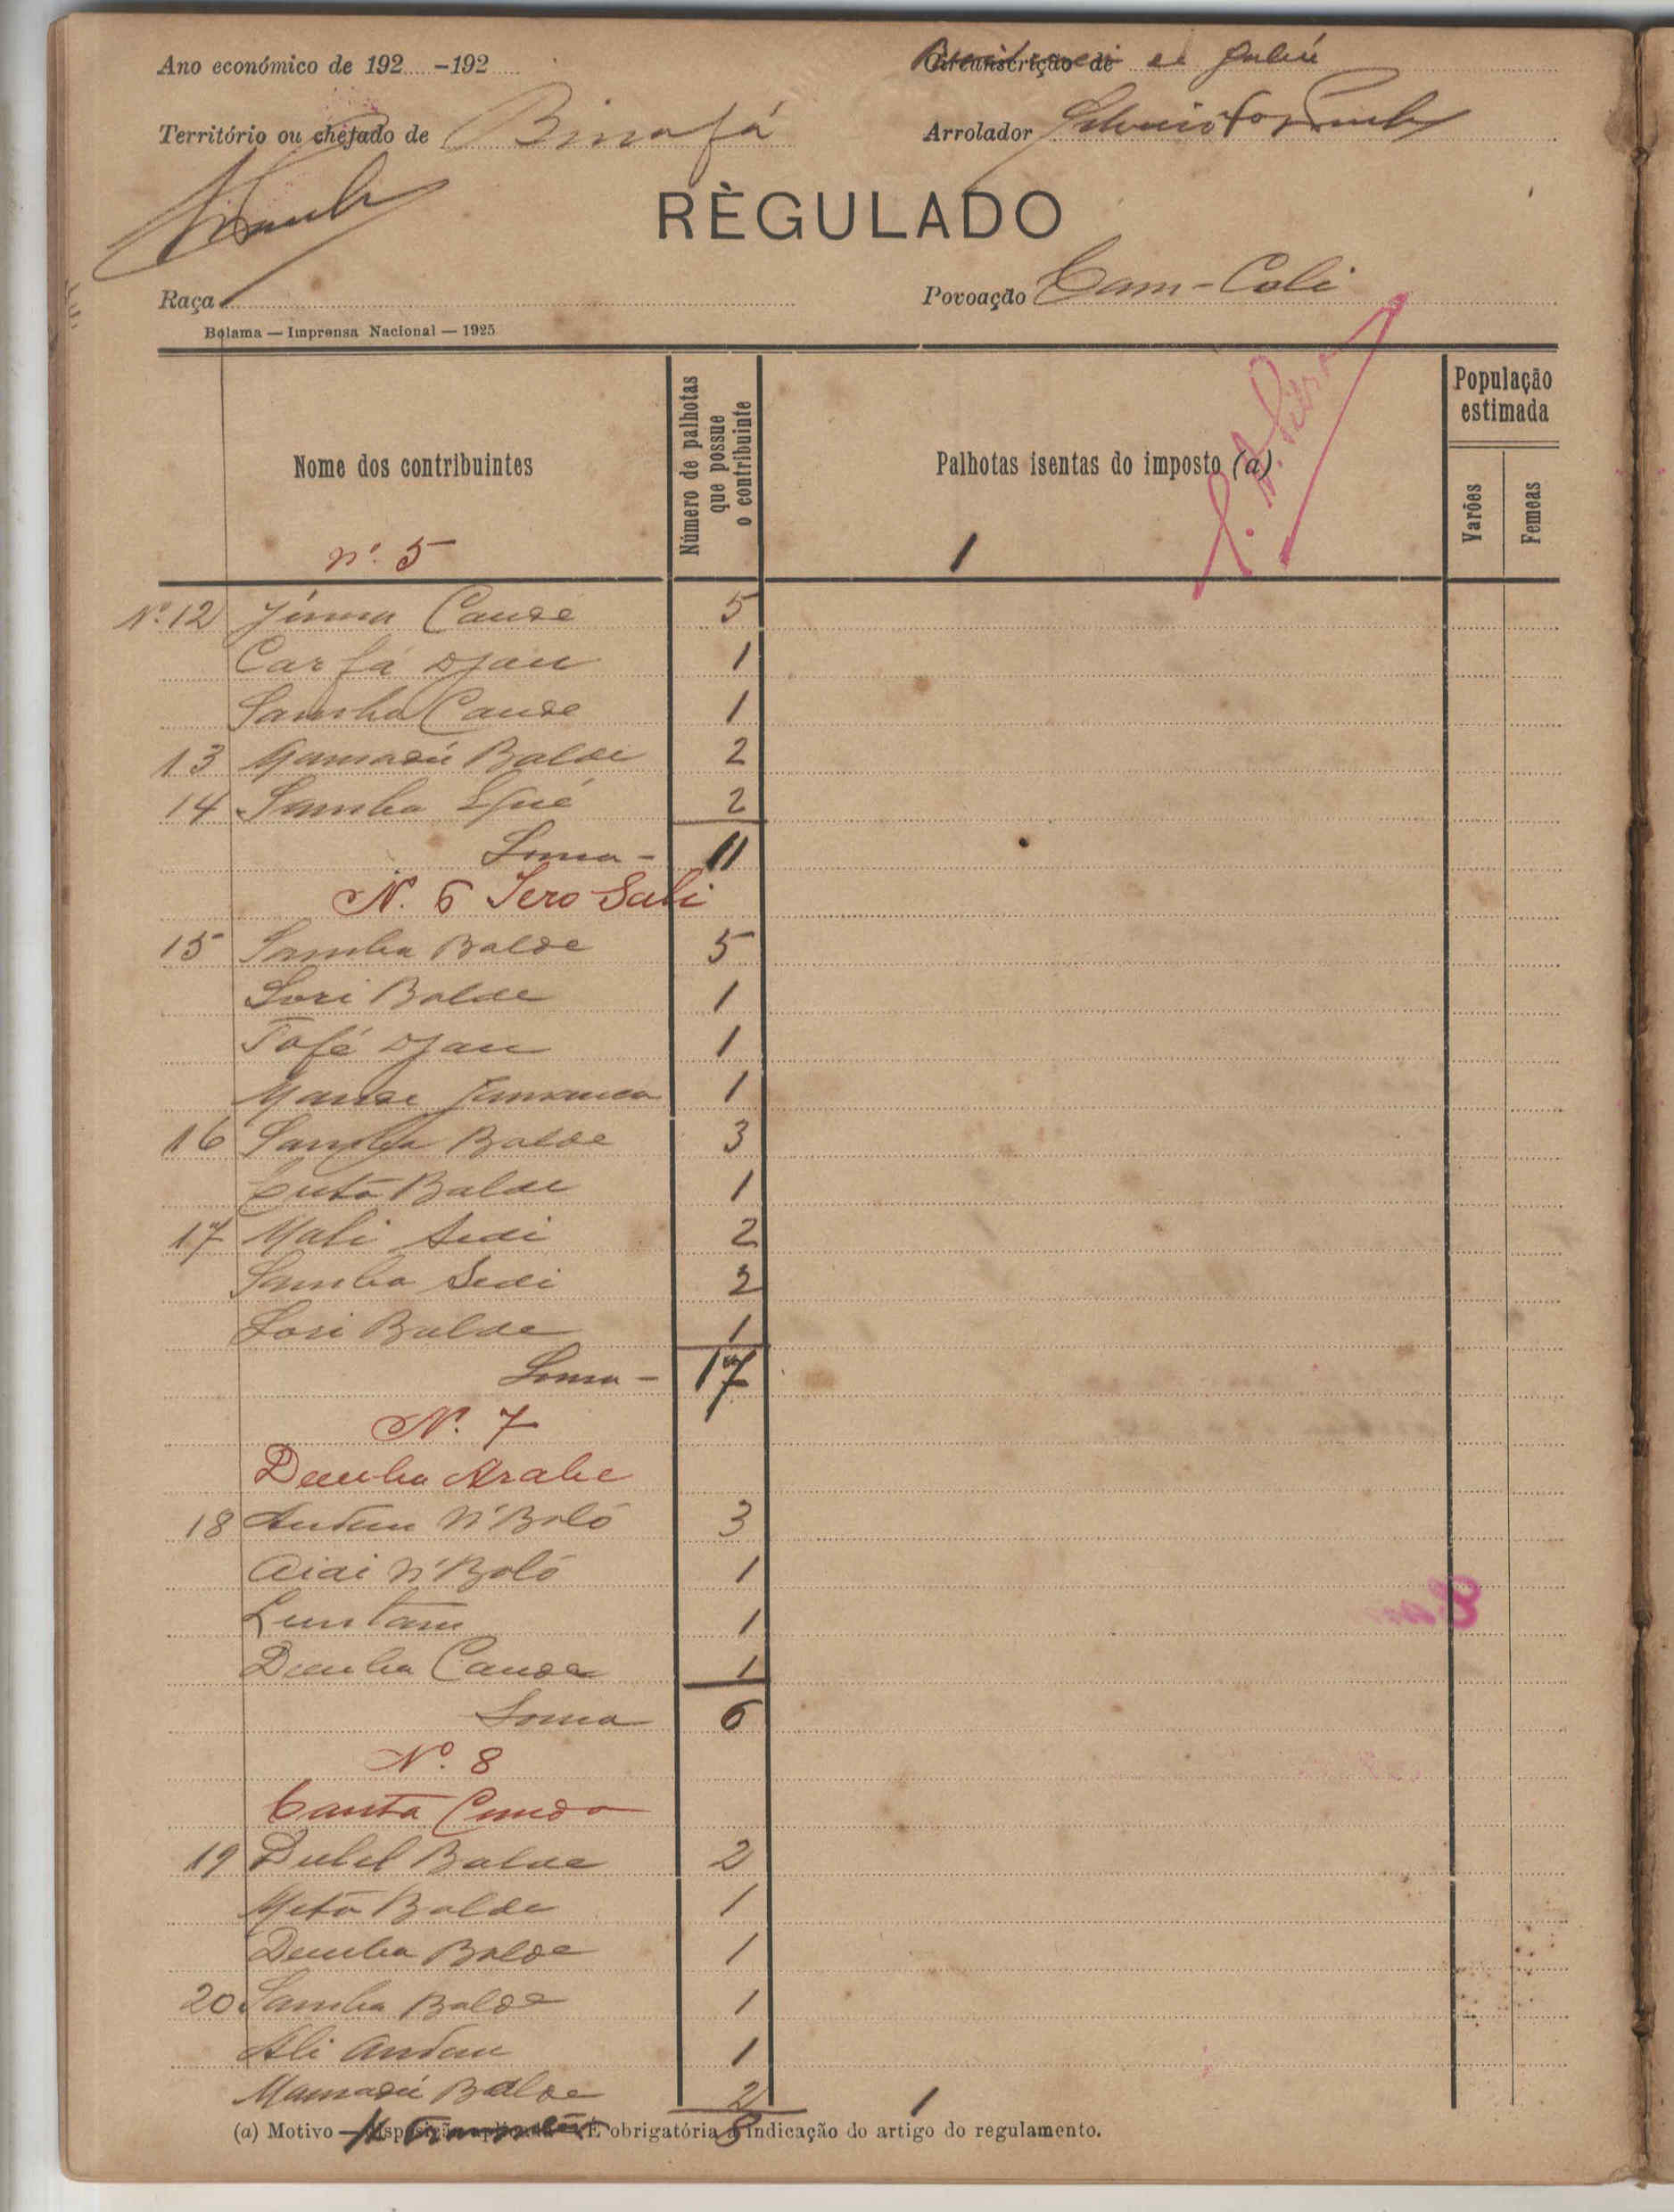 Ano económico de 192 -192
Circunscrição de
Território ou chefado de Binafá
Arrolador
RÈGULADO
Raça
Povoação Cam-Coli
Bolama — Imprensa Nacional — 1925
Nome dos contribuintes
Número de palhotas que possue o contribuinte
Palhotas isentas do imposto (a)
População estimada
Varões
Femeas
Nº 5
1
Nº 12 Cande 5
Carfá Djau 1
Samba Cande 1
13 Mamadú Balde 2
14 Samba 2
Soma - 11
N. 6 Sero Sali
15 Samba Balde 5
Sori Balde 1
Tofé Djau 1
1
16 Samba Balde 3
Cuta Balde 1
17 Mali Sedi 2
Samba Sedi 2
Sori Balde 1
Soma - 17
N. 7
Demba Arabe
18 N'Boló 3
Aiai N'Boló 1
1
Demba Cande 1
Soma 6
Nº 8
Canta Cunda
19 Balde 2
Balde 1
Demba Balde 1
20 Samba Balde 1
Ali 1
Mamadú Balde 2 1
8
(a) Motivo — disposição aplicada — É obrigatória a indicação do artigo do regulamento.